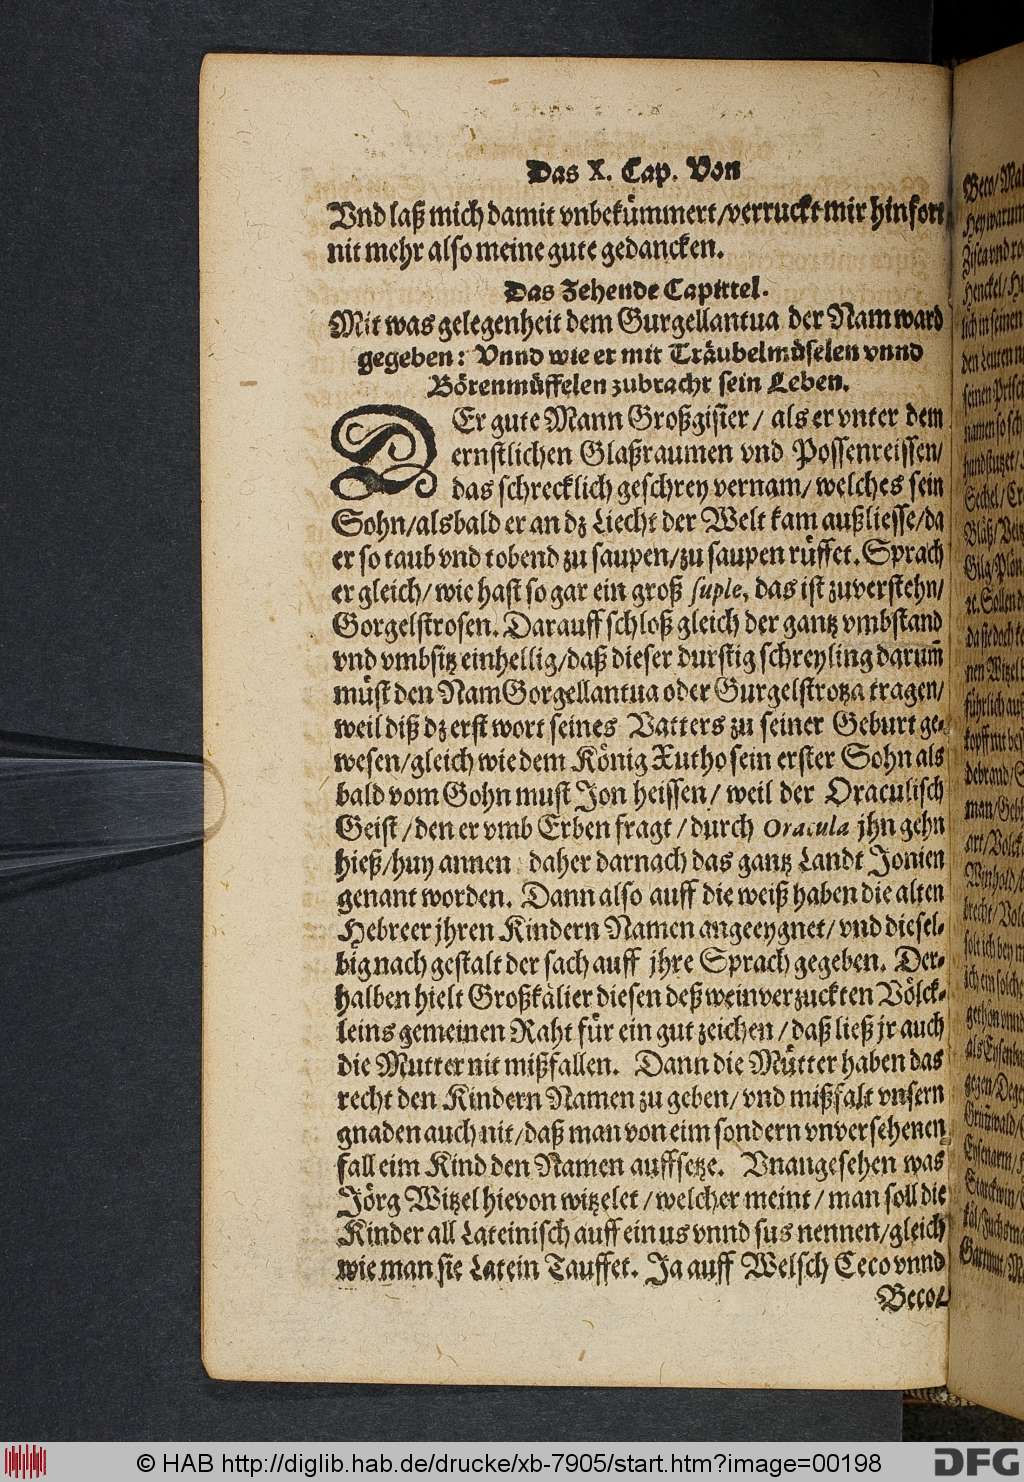 Das X. Cap. Von
Vnd laß mich damit vnbekümmert/verruckt mir hinfort
nit mehr also meine gute gedancken.
Das Zehende Capittel.
Mit was gelegenheit dem Gurgellantua der Nam ward
gegeben: Vnnd wie er mit Träubelmüselen vnnd
Börenmüffelen zubracht sein Leben.
DEr gute Mann Großgisier / als er vnter dem
ernstlichen Glaßraumen vnd Possenreissen/
das schrecklich geschrey vernam/ welches sein
Sohn/alsbald er an dz Liecht der Welt kam außliesse/da
er so taub vnd tobend zu saupen/zu saupen rüffet. Sprach
er gleich/ wie hast so gar ein groß suple, das ist zuverstehn/
Gorgelstrosen. Darauff schloß gleich der gantz vmbstand
vnd vmbsitz einhellig/daß dieser durstig schreyling darum̃
müst den Nam Gorgellantua oder Gurgelstrotza tragen/
weil diß dz erst wort seines Vatters zu seiner Geburt ge-
wesen/gleich wie dem König Xutho sein erster Sohn als
bald vom Gohn must Jon heissen/ weil der Oraculisch
Geist /den er vmb Erben fragt / durch Oracula jhn gehn
hieß/huy annen daher darnach das gantz Landt Jonien
genant worden. Dann also auff die weiß haben die alten
Hebreer jhren Kindern Namen angeeygnet/ vnd diesel-
big nach gestalt der sach auff jhre Sprach gegeben. Der-
halben hielt Großkälier diesen deß weinverzuckten Völck-
leins gemeinen Raht für ein gut zeichen / daß ließ jr auch
die Mutter nit mißfallen. Dann die Mütter haben das
recht den Kindern Namen zu geben/ vnd mißfalt vnsern
gnaden auch nit/daß man von eim sondern vnversehenen
fall eim Kind den Namen auffsetze. Vnangesehen was
Jörg Witzel hievon witzelet / welcher meint / man soll die
Kinder all Lateinisch auff ein us vnnd sus nennen/gleich
wie man sie Latein Tauffet. Ja auff Welsch Ceco vnnd
Beco/
© HAB http://diglib.hab.de/drucke/xb-7905/start.htm?image=00198
DFG